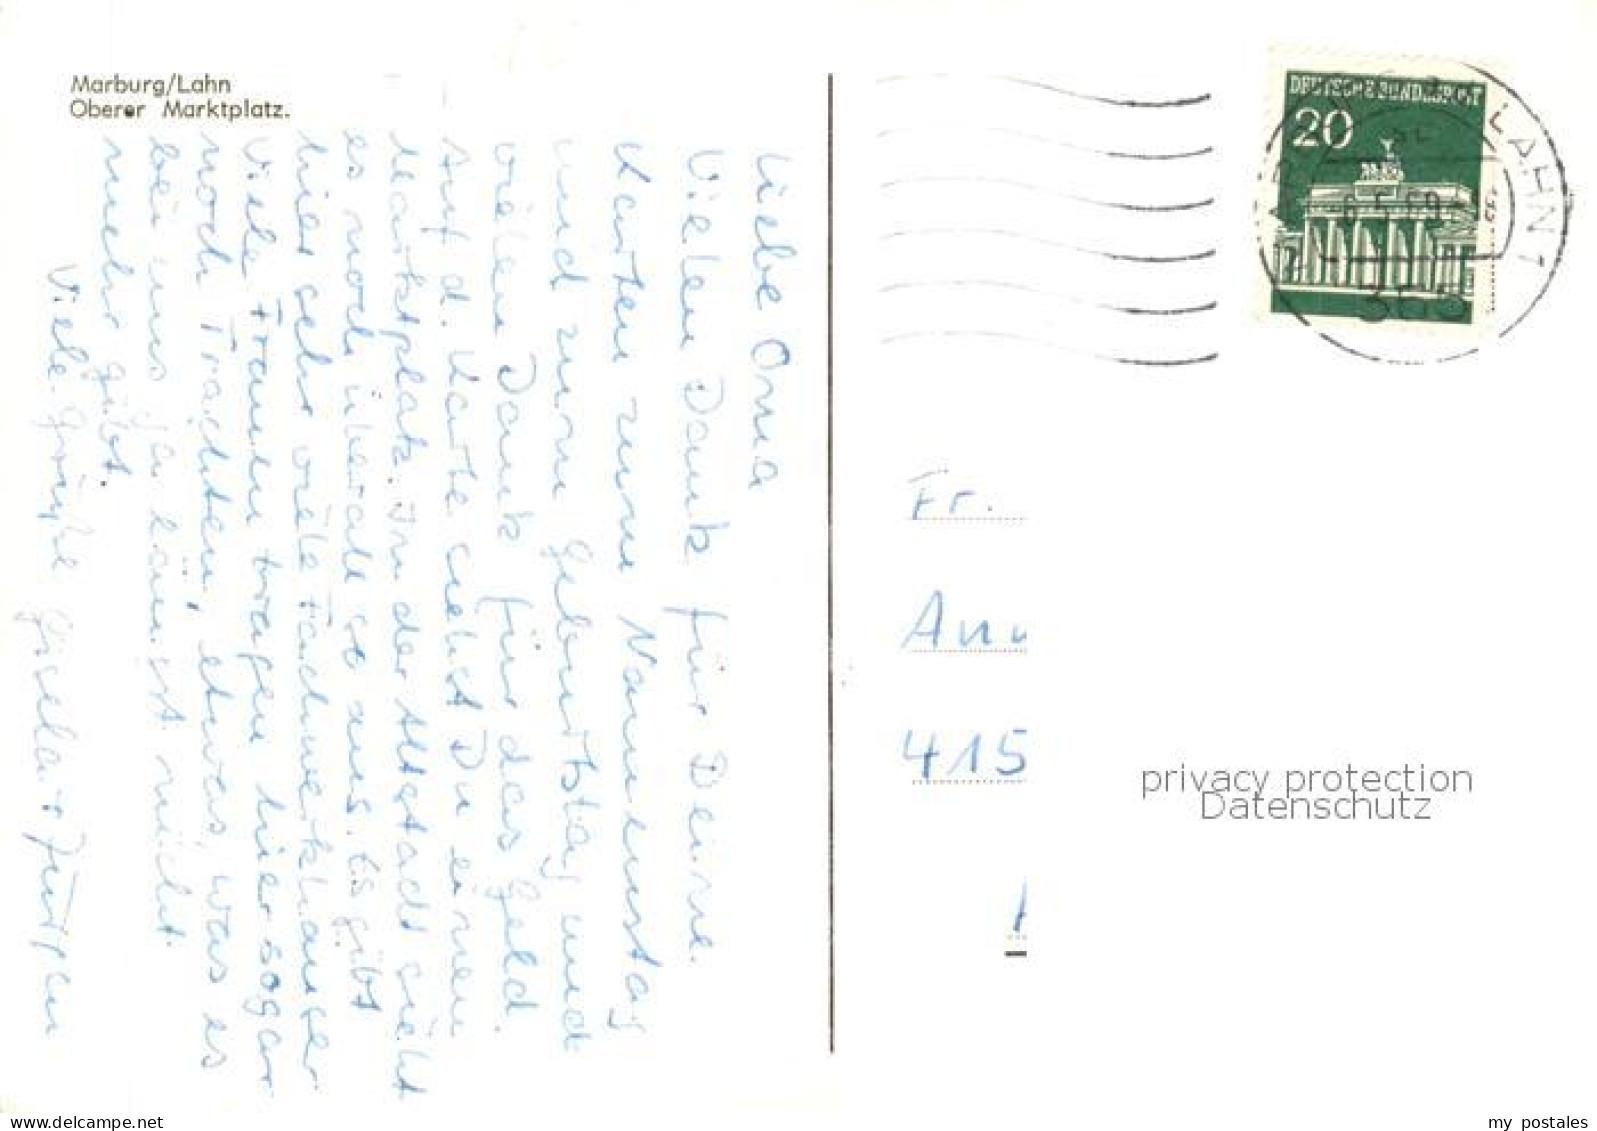 Marburg/Lahn
Oberer Marktplatz.
Liebe Oma
Vielen Dank für Deine
Karten zum Namenstag
und zum Geburtstag und
vielen Dank für das Geld.
Auf d. Karte siehst Du einen
Marktplatz. In der Altstadt sieht
es noch überall so aus. Es gibt
hier sehr viele Fachwerkhäuser
Viele Frauen tragen hier sogar
noch Trachten, etwas, was es
bei uns ja längst nicht
mehr gibt.
Viele Grüße Gisela +
DEUTSCHE BUNDESPOST
20
LAHN 1
-6.5.69
355
Fr.
415
privacy protection
Datenschutz
www.ansichtskartenhandel.com
my postales